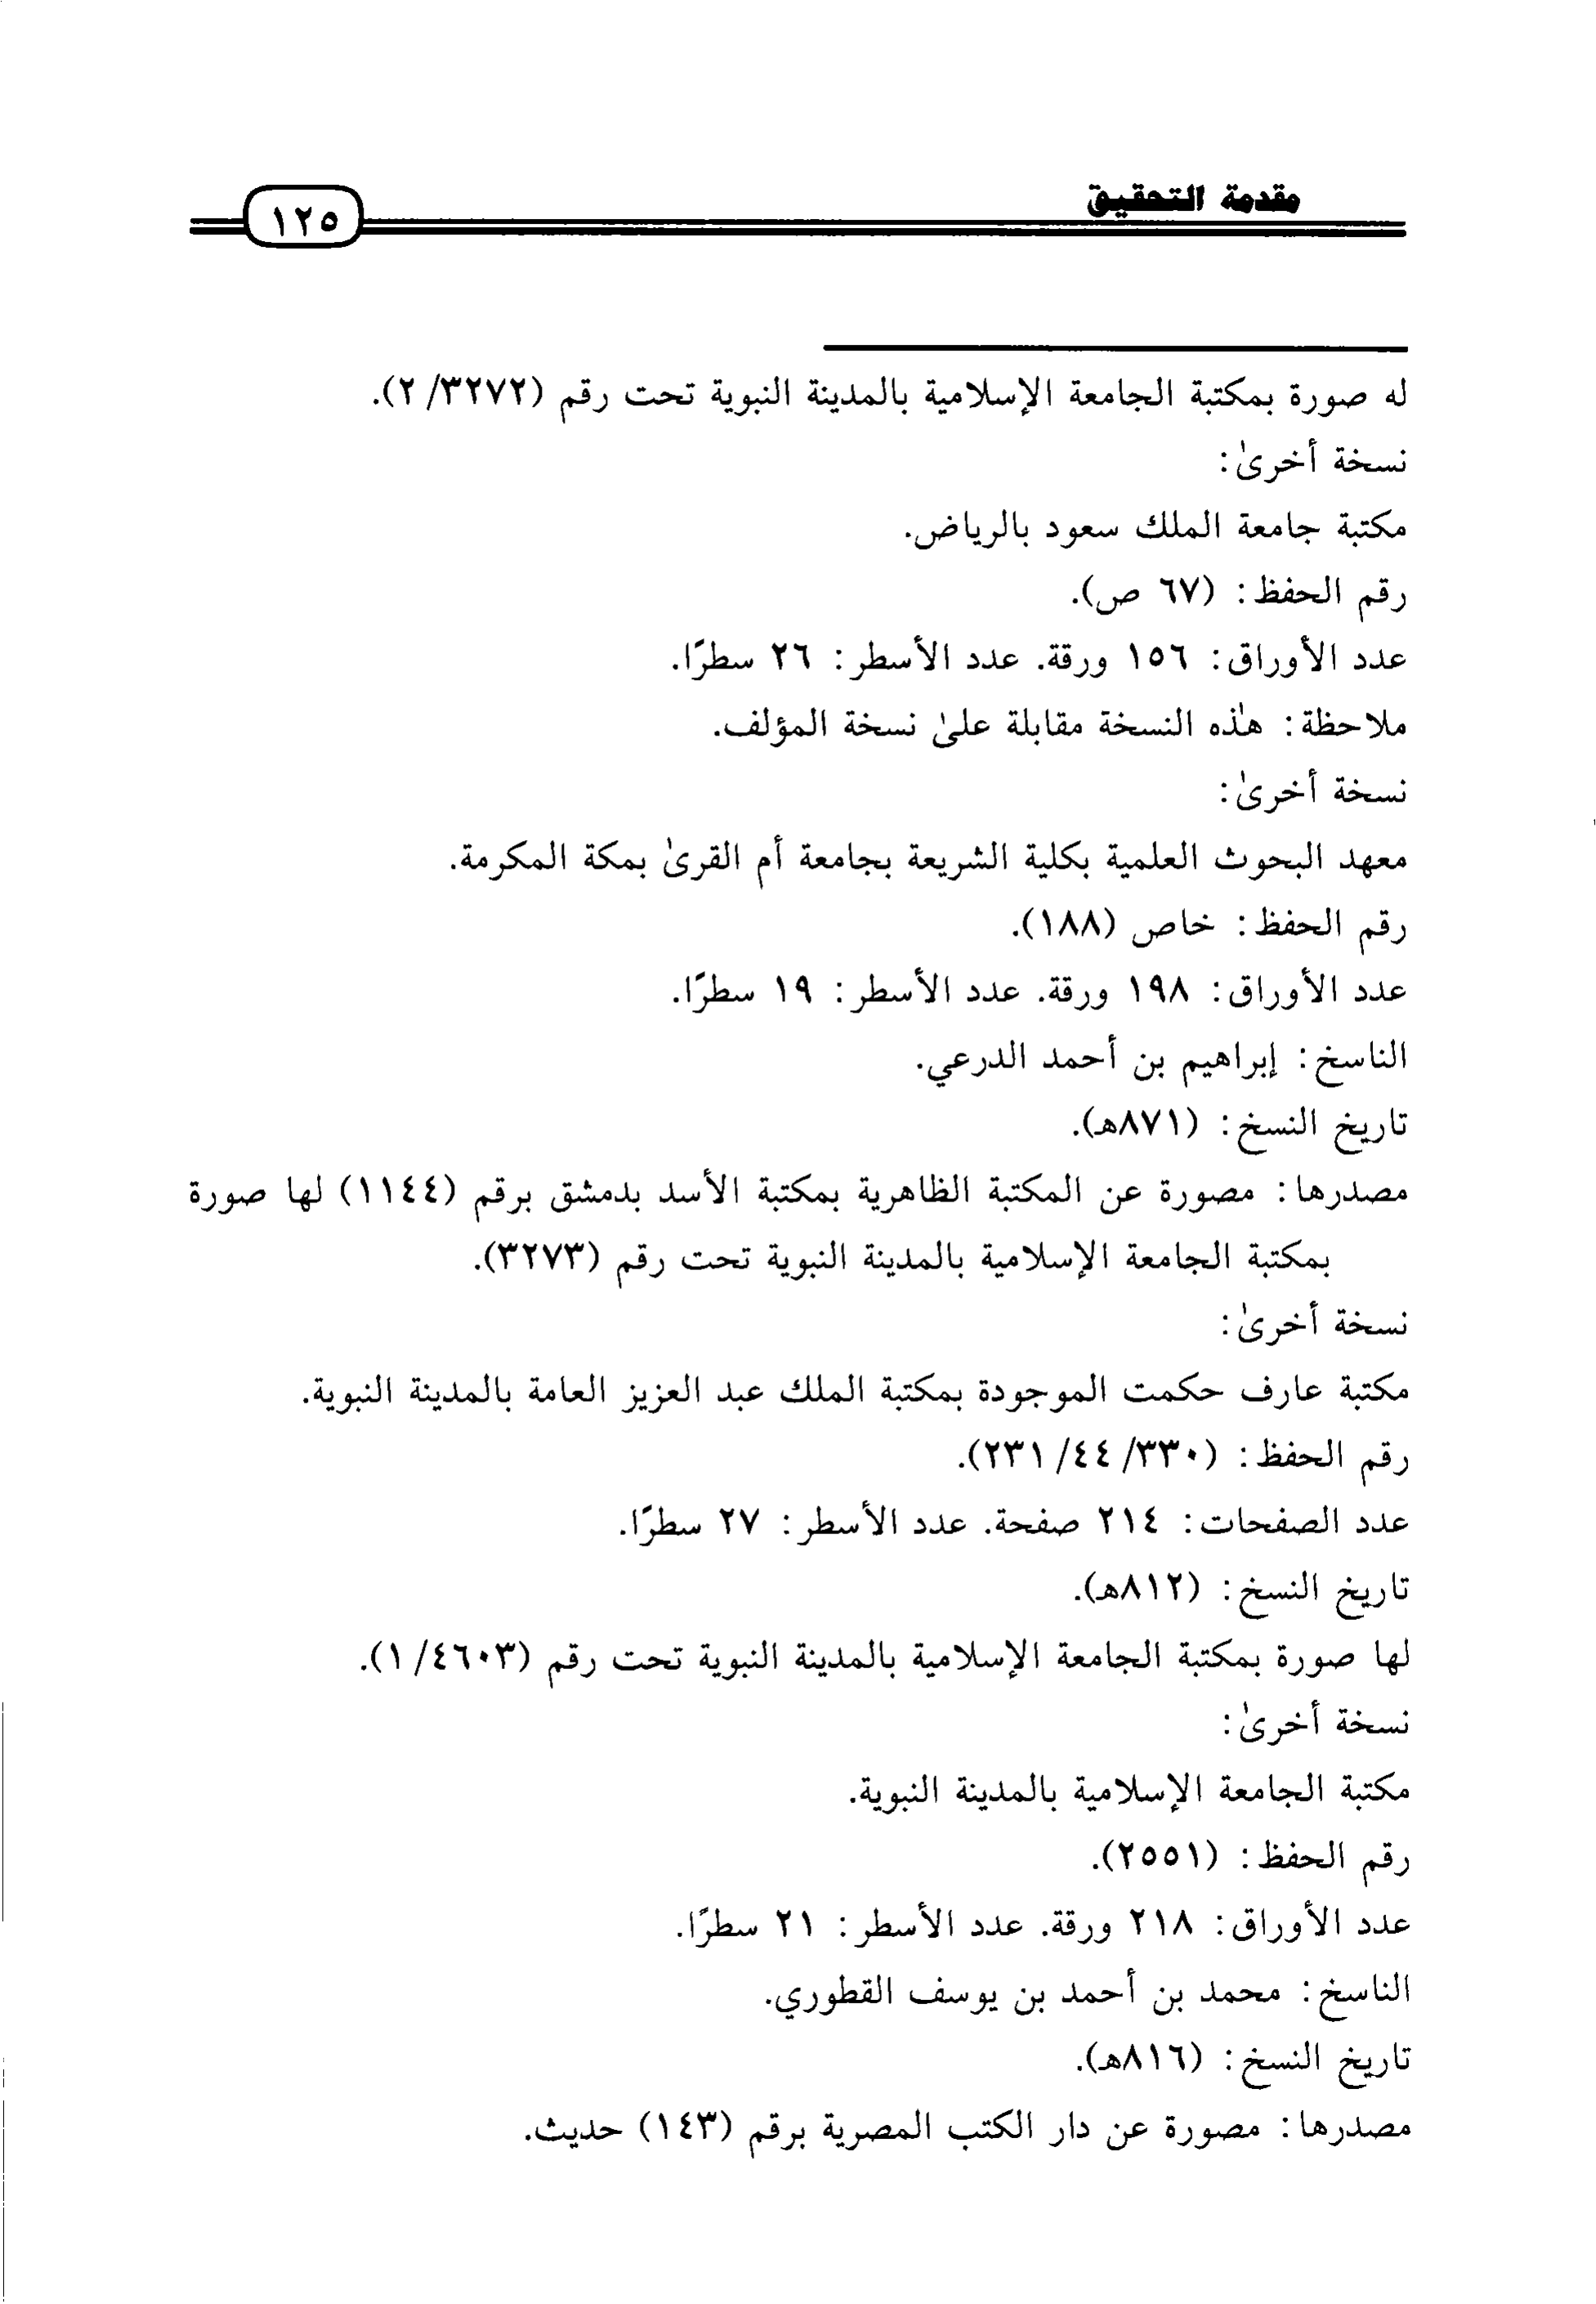 مقدمة التحقيق
١٢٥
له صورة بمكتبة الجامعة الإسلامية بالمدينة النبوية تحت رقم (٣٢٧٢/ ٢).
نسخة أخرىٰ:
مكتبة جامعة الملك سعود بالرياض.
رقم الحفظ: (٦٧ ص).
عدد الأوراق: ١٥٦ ورقة. عدد الأسطر: ٢٦ سطرًا.
ملاحظة: هٰذه النسخة مقابلة علىٰ نسخة المؤلف.
نسخة أخرىٰ:
معهد البحوث العلمية بكلية الشريعة بجامعة أم القرىٰ بمكة المكرمة.
رقم الحفظ: خاص (١٨٨).
عدد الأوراق: ١٩٨ ورقة. عدد الأسطر: ١٩ سطرًا.
الناسخ: إبراهيم بن أحمد الدرعي.
تاريخ النسخ: (٨٧١هـ).
مصدرها: مصورة عن المكتبة الظاهرية بمكتبة الأسد بدمشق برقم (١١٤٤) لها صورة
بمكتبة الجامعة الإسلامية بالمدينة النبوية تحت رقم (٣٢٧٣).
نسخة أخرىٰ:
مكتبة عارف حكمت الموجودة بمكتبة الملك عبد العزيز العامة بالمدينة النبوية.
رقم الحفظ: (٣٣٠/ ٤٤/ ٢٣١).
عدد الصفحات: ٢١٤ صفحة. عدد الأسطر: ٢٧ سطرًا.
تاريخ النسخ: (٨١٢هـ).
لها صورة بمكتبة الجامعة الإسلامية بالمدينة النبوية تحت رقم (٤٦٠٣/ ١).
نسخة أخرىٰ:
مكتبة الجامعة الإسلامية بالمدينة النبوية.
رقم الحفظ: (٢٥٥١).
عدد الأوراق: ٢١٨ ورقة. عدد الأسطر: ٢١ سطرًا.
الناسخ: محمد بن أحمد بن يوسف القطوري.
تاريخ النسخ: (٨١٦هـ).
مصدرها: مصورة عن دار الكتب المصرية برقم (١٤٣) حديث.